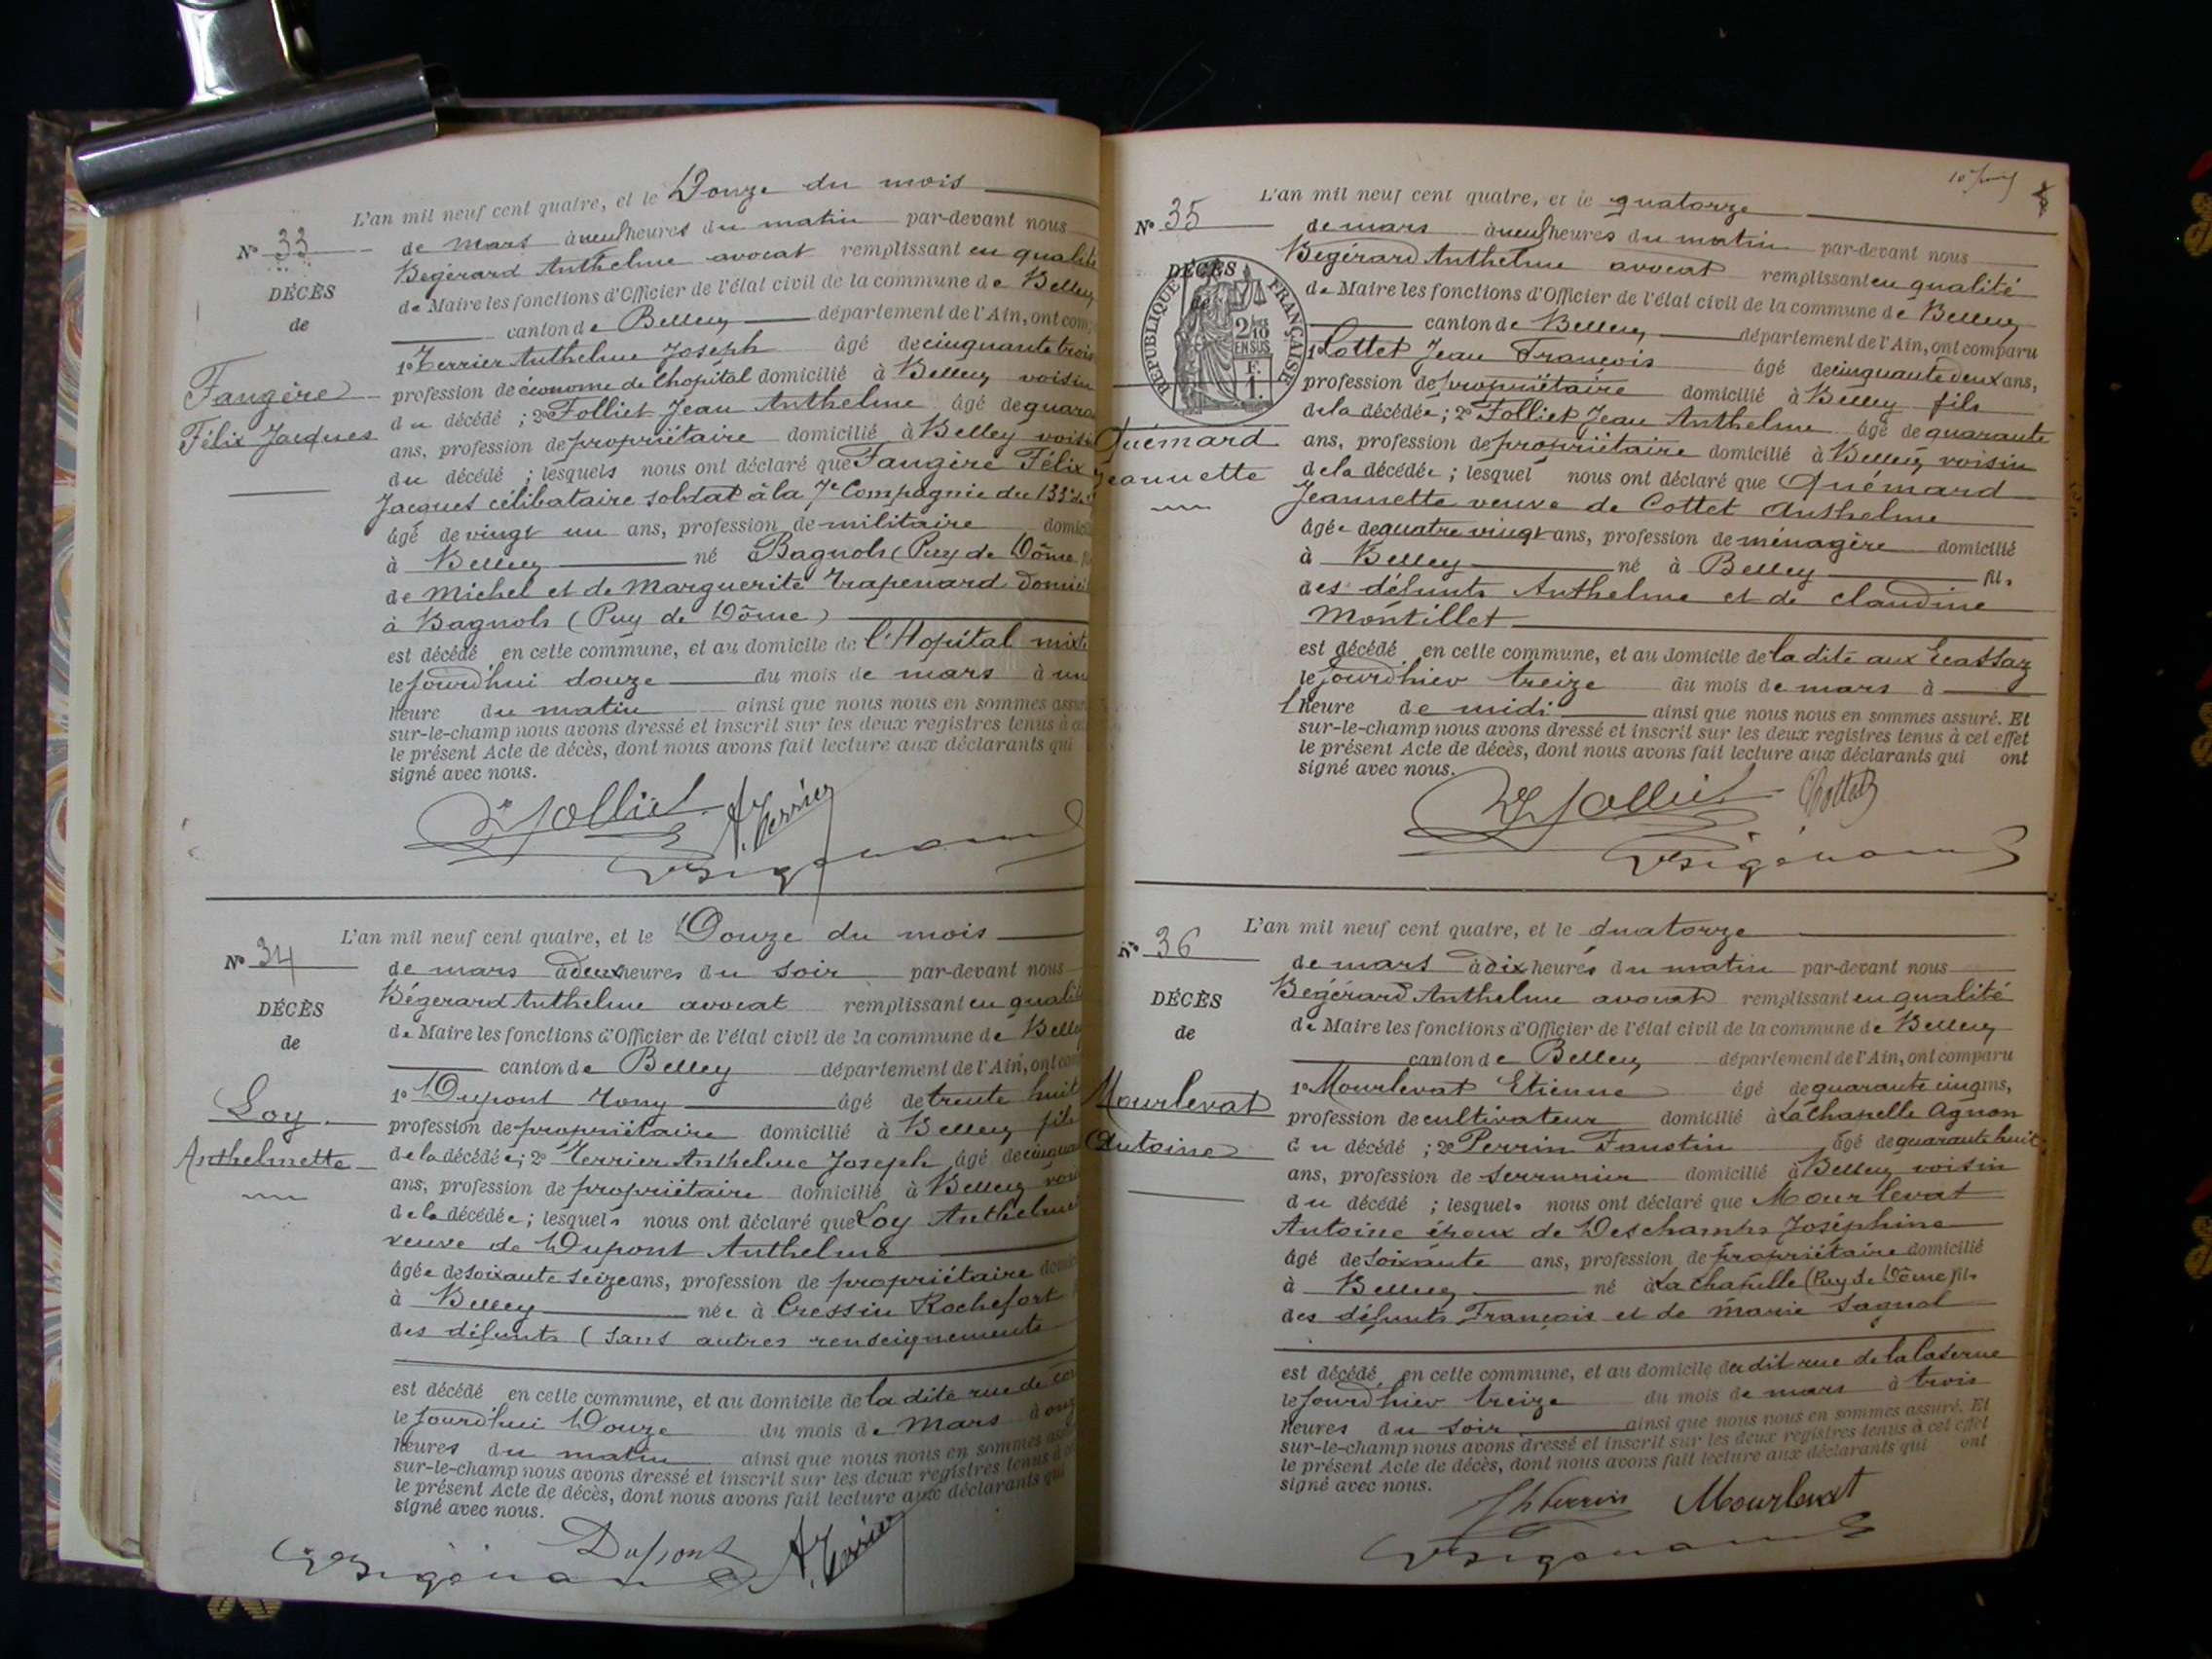 L'an mil neuf cent quatre, et le Douze du mois
N° 33
de mars à neuf heures du matin par-devant nous
Bégérard Anthelme avocat remplissant en qualité
DÉCÈS
de Maire les fonctions d'Officier de l'état civil de la commune de Belley
de
canton de Belley département de l'Ain, ont com
1° Terrier Anthelme Joseph âgé de cinquante trois
Faugère
profession de économe de l'hopital domicilié à Belley voisin
du décédé ; 2° Folliet Jean Anthelme âgé de quara
Félix Jacques
ans, profession de propriétaire domicilié à Belley voisin
du décédé ; lesquels nous ont déclaré que Faugère Félix
Jacques célibataire soldat à la 7e Compagnie du 133e
âgé de vingt un ans, profession de militaire domici
à Belley né à Bagnols (Puy de Dôme
de Michel et de Marguerite Trapenard domici
à Bagnols (Puy de Dôme)
est décédé en cette commune, et au domicile de l'Hopital mixte
le jourd'hui douze du mois de mars à une
heure du matin ainsi que nous nous en sommes assu
sur-le-champ nous avons dressé et inscrit sur les deux registres tenus à ce
le présent Acte de décès, dont nous avons fait lecture aux déclarants qui
signé avec nous.
Folliet A. Terrier
Bégérard
L'an mil neuf cent quatre, et le Douze du mois
N° 34
de mars à deux heures du soir par-devant nous
Bégerard Anthelme avocat remplissant en qualité
DÉCÈS
de Maire les fonctions d'Officier de l'état civil de la commune de Belley
de
canton de Belley département de l'Ain, ont com
1° Dupont Tony âgé de trente huit
Loy
profession de propriétaire domicilié à Belley fils
Anthelmette
de la décédée ; 2° Terrier Anthelme Joseph âgé de cinquan
ans, profession de propriétaire domicilié à Belley voi
de la décédée ; lesquels nous ont déclaré que Loy Anthelme
veuve de Dupont Anthelme
âgée de soixante seize ans, profession de propriétaire domici
à Belley née à Cressin Rochefort
des défunts (sans autres renseignements
est décédé en cette commune, et au domicile de la dite rue de
le jourd'hui Douze du mois de Mars à onze
heures du matin ainsi que nous nous en sommes assu
sur-le-champ nous avons dressé et inscrit sur les deux registres tenus à ce
le présent Acte de décès, dont nous avons fait lecture aux déclarants qui
signé avec nous.
Dupont A. Terrier
Bégérard
L'an mil neuf cent quatre, et le quatorze
N° 35
de mars à neuf heures du matin par-devant nous
Bégérard Anthelme avocat remplissant en qualité
DÉCÈS
de
RÉPUBLIQUE FRANÇAISE
2/10 EN SUS
F. 1.
de Maire les fonctions d'Officier de l'état civil de la commune de Belley
canton de Belley département de l'Ain, ont comparu
1° Cottet Jean François âgé de cinquante deux ans,
profession de propriétaire domicilié à Belley fils
de la décédée ; 2° Folliet Jean Anthelme âgé de quarante
Quémard
ans, profession de propriétaire domicilié à Belley voisin
Jeannette
de la décédée ; lesquel nous ont déclaré que Quémard
Jeannette veuve de Cottet Anthelme
âgée de quatre vingt ans, profession de ménagère domicilié
à Belley né à Belley fil
des défunts Anthelme et de Claudine
Montillet
est décédé en cette commune, et au domicile de la dite aux Ecassaz
le jourd'hier treize du mois de mars à
1 heure de midi ainsi que nous nous en sommes assuré. Et
sur-le-champ nous avons dressé et inscrit sur les deux registres tenus à cet effet
le présent Acte de décès, dont nous avons fait lecture aux déclarants qui ont
signé avec nous.
Folliet Cottet
Bégérard
L'an mil neuf cent quatre, et le quatorze
N° 36
de mars à dix heures du matin par-devant nous
Bégérard Anthelme avocat remplissant en qualité
DÉCÈS
de Maire les fonctions d'Officier de l'état civil de la commune de Belley
de
canton de Belley département de l'Ain, ont comparu
Mourlevat
1° Mourlevat Etienne âgé de quarante cinq ans,
profession de cultivateur domicilié à La Chapelle Agnon
Antoine
du décédé ; 2° Perrin Faustin âgé de quarante huit
ans, profession de serrurier domicilié à Belley voisin
du décédé ; lesquels nous ont déclaré que Mourlevat
Antoine époux de Deschamps Joséphine
âgé de soixante ans, profession de propriétaire domicilié
à Belley né à La Chapelle (Puy de Dôme fils
des défunts François et de Marie Sagnol
est décédé en cette commune, et au domicile du dit rue de la Caserne
le jourd'hier treize du mois de mars à trois
heures du soir ainsi que nous nous en sommes assuré. Et
sur-le-champ nous avons dressé et inscrit sur les deux registres tenus à cet effet
le présent Acte de décès, dont nous avons fait lecture aux déclarants qui ont
signé avec nous.
Perrin Mourlevat
Bégérard